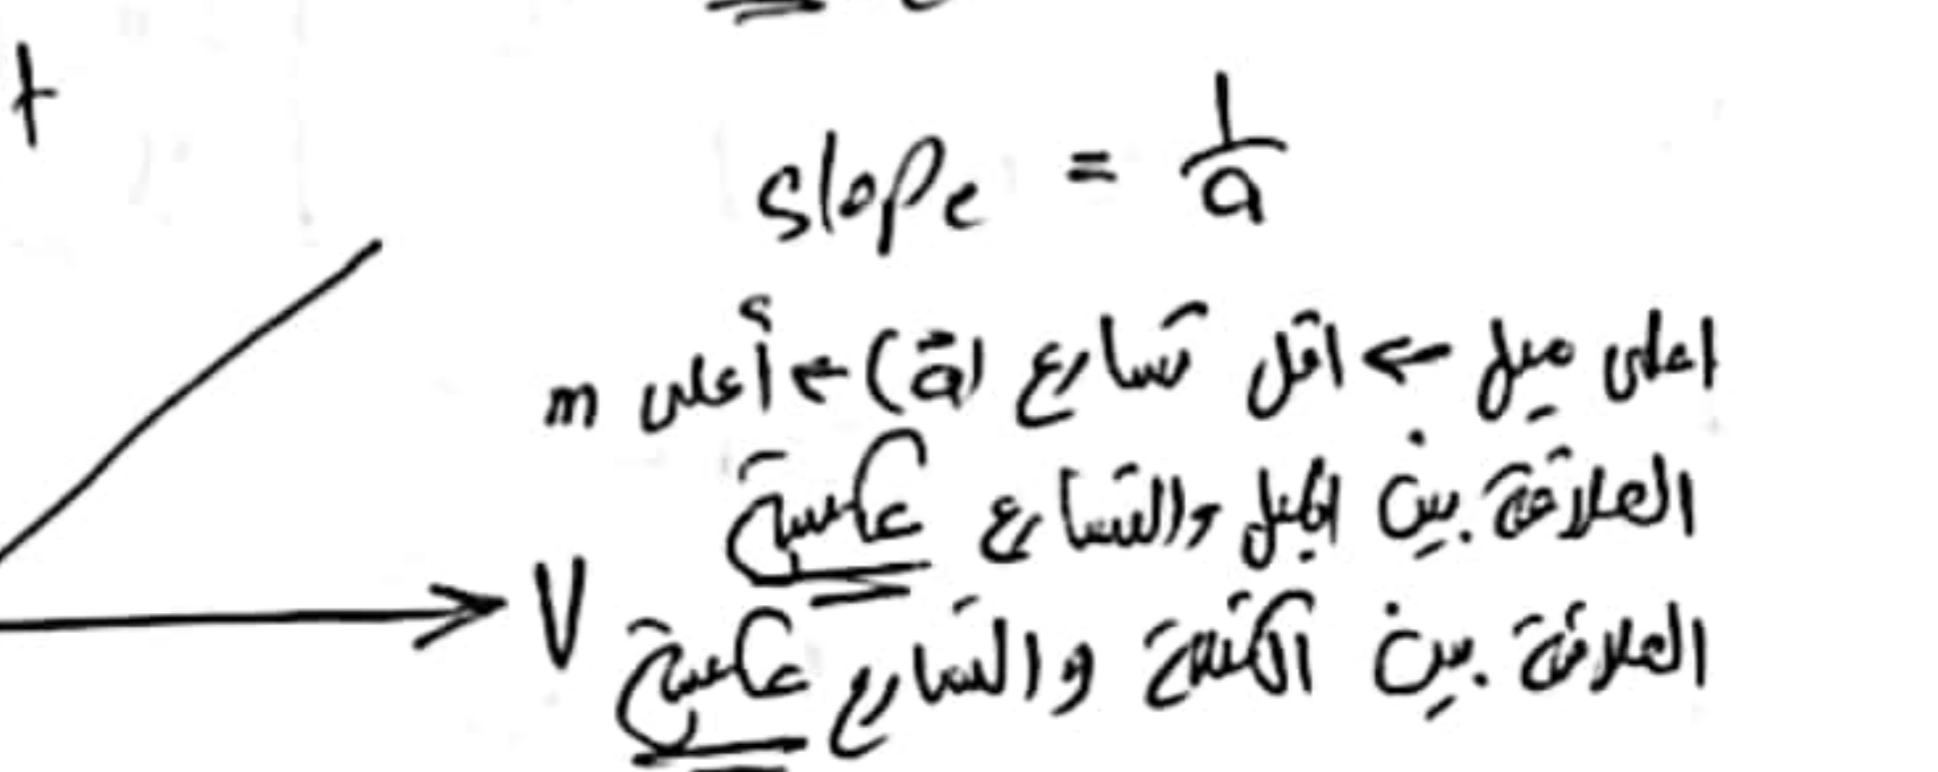 t
slope = 1/a
اعلى ميل ← اقل تسارع (a) ← أعلى m
العلاقة بين الميل والتسارع عكسية
V
العلاقة بين الكتلة والتسارع عكسية